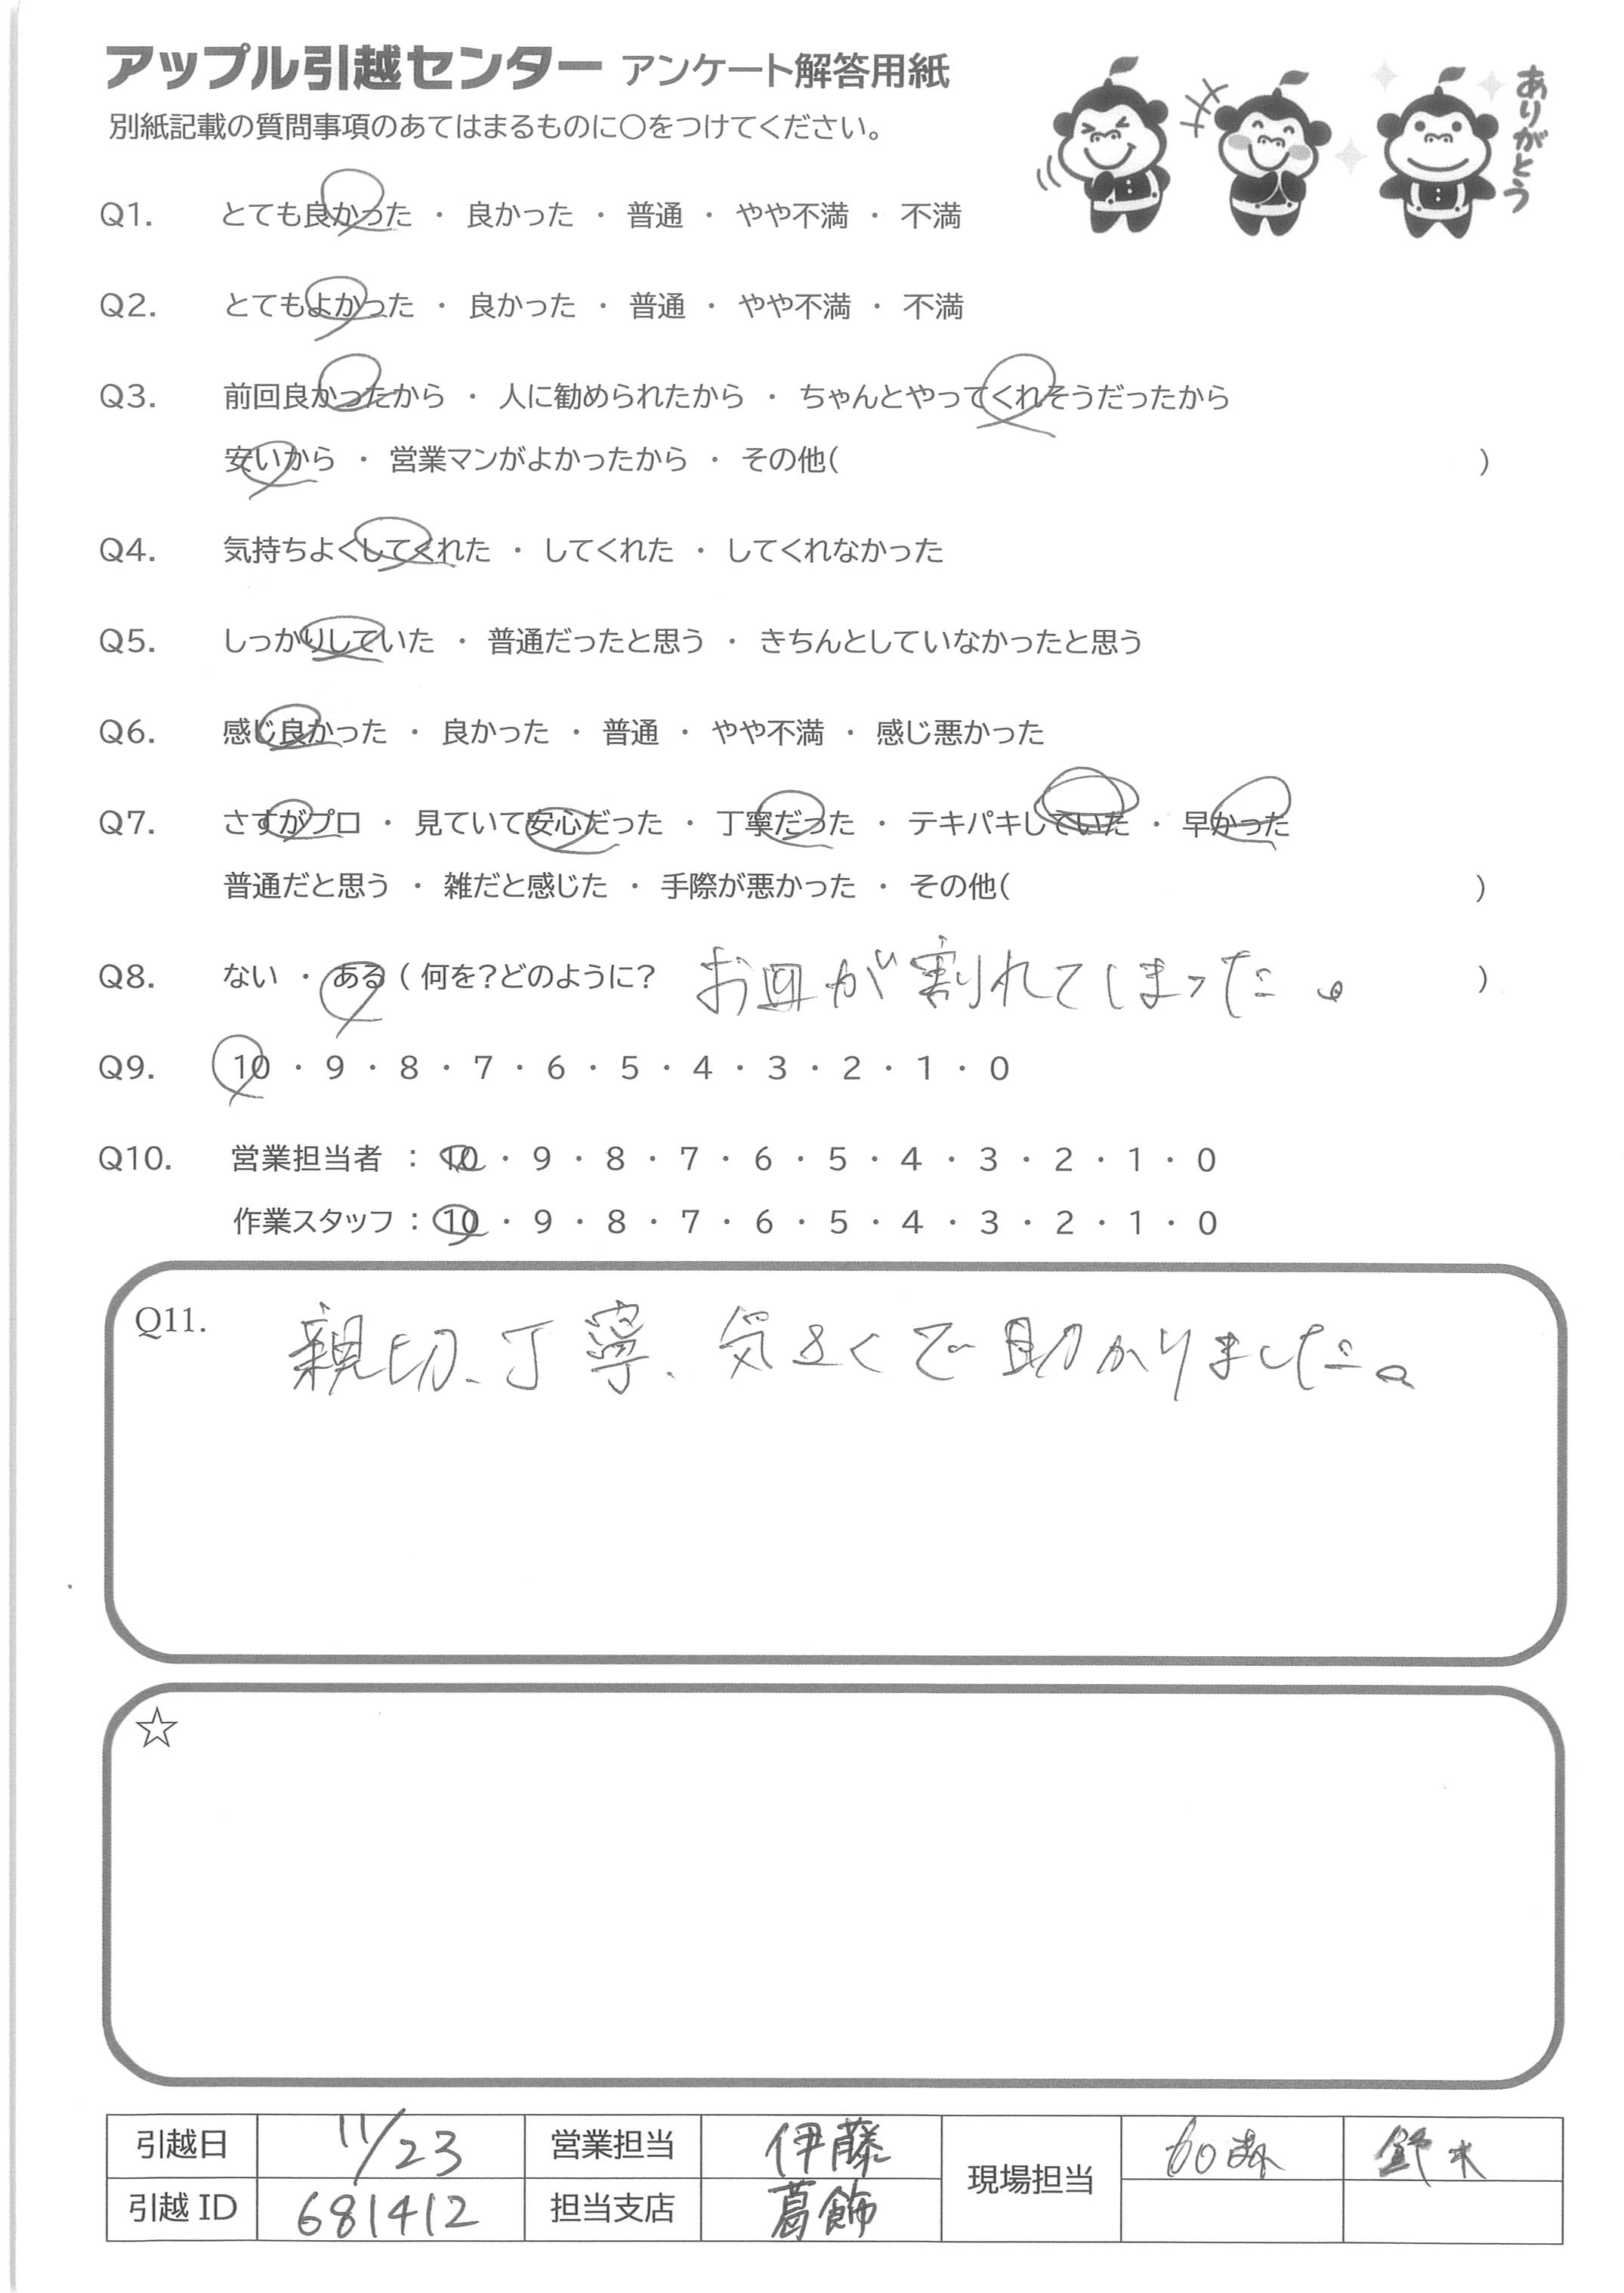 アップル引越センター アンケート解答用紙
別紙記載の質問事項のあてはまるものに○をつけてください。
ありがとう
Q1. とても良かった ・ 良かった ・ 普通 ・ やや不満 ・ 不満
Q2. とてもよかった ・ 良かった ・ 普通 ・ やや不満 ・ 不満
Q3. 前回良かったから ・ 人に勧められたから ・ ちゃんとやってくれそうだったから
安いから ・ 営業マンがよかったから ・ その他( )
Q4. 気持ちよくしてくれた ・ してくれた ・ してくれなかった
Q5. しっかりしていた ・ 普通だったと思う ・ きちんとしていなかったと思う
Q6. 感じ良かった ・ 良かった ・ 普通 ・ やや不満 ・ 感じ悪かった
Q7. さすがプロ ・ 見ていて安心だった ・ 丁寧だった ・ テキパキしていた ・ 早かった
普通だと思う ・ 雑だと感じた ・ 手際が悪かった ・ その他( )
Q8. ない ・ ある ( 何を?どのように? お皿が割れてしまった。 )
Q9. 10 ・ 9 ・ 8 ・ 7 ・ 6 ・ 5 ・ 4 ・ 3 ・ 2 ・ 1 ・ 0
Q10. 営業担当者 : 10 ・ 9 ・ 8 ・ 7 ・ 6 ・ 5 ・ 4 ・ 3 ・ 2 ・ 1 ・ 0
作業スタッフ : 10 ・ 9 ・ 8 ・ 7 ・ 6 ・ 5 ・ 4 ・ 3 ・ 2 ・ 1 ・ 0
Q11. 親切、丁寧、気さくで助かりました。
☆
引越日 11/23 営業担当 伊藤 現場担当 鈴木
引越ID 681412 担当支店 葛飾